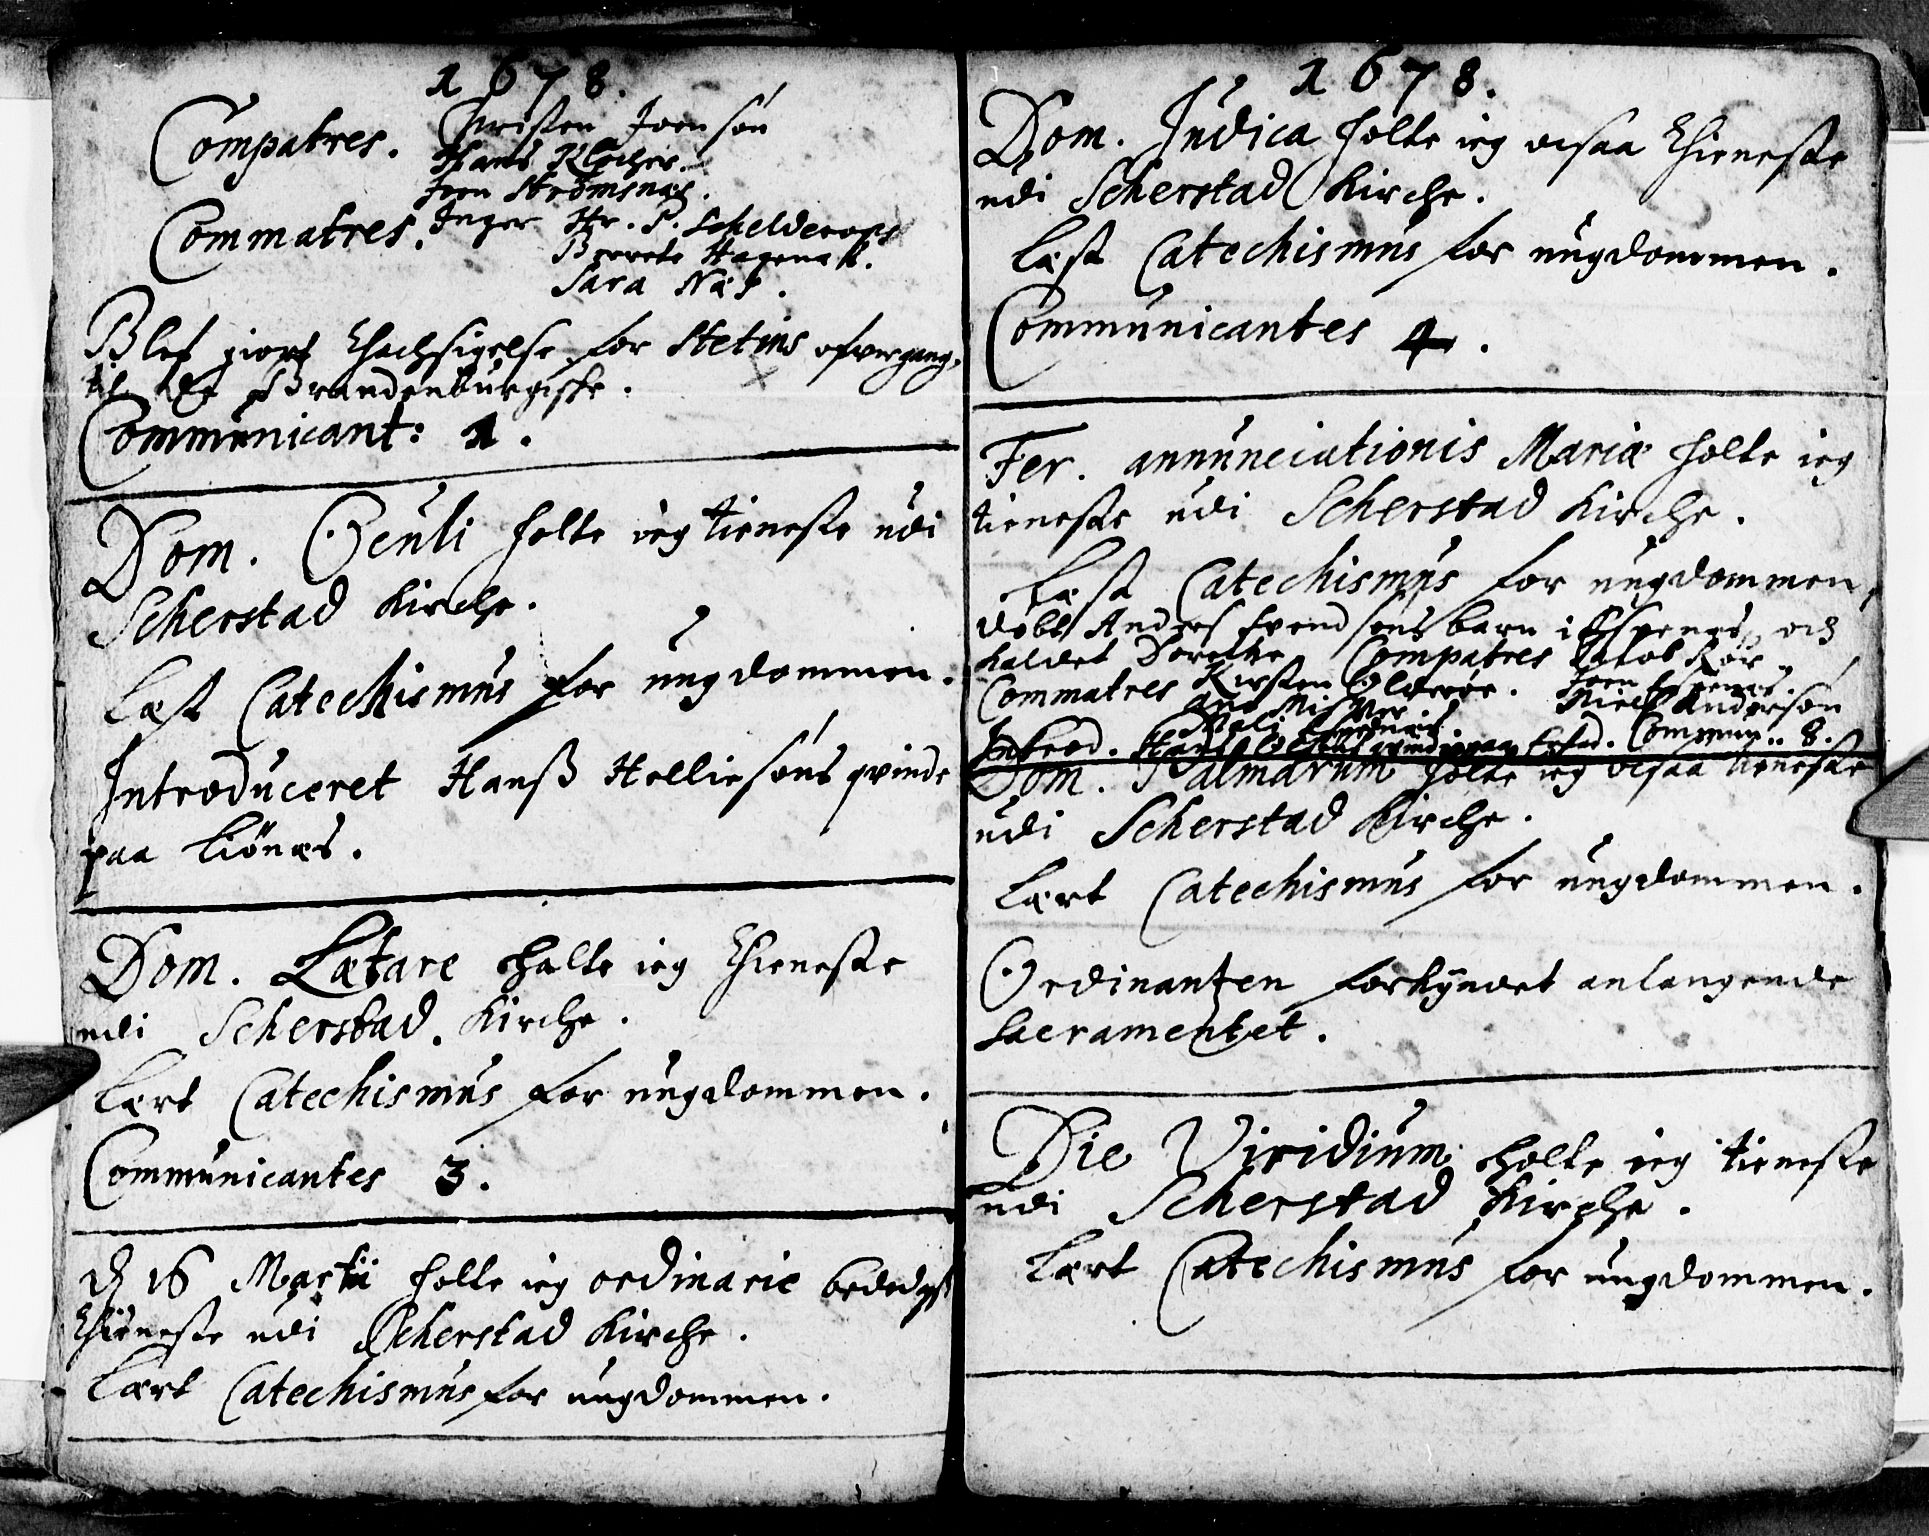 1678.
Compatres. Christen Joensøn
Hans Klocher.
Joen Strømsnæs.
Commatres. Inger Hr. P. Schelderops
Berrete Hagenæs.
Sara Næs.
Blef giort Thachsigelse for Stetins ofvergang,
til det Brandenburgiske.
Communicant: 1.
Dom. Oculi holte ieg tieneste udi
Scherstad Kirche.
Læst Catechismus for ungdommen.
Introduceret Hanß Helliesøns qvinde
paa Liønæs.
Dom. Lætare holte ieg Thieneste
udi Scherstad Kirche.
Lært Catechismus for ungdommen.
Communicantes 3.
d 16 Martii holte ieg ordinarie bededags
Thieneste udi Scherstad Kirche.
Lært Catechismus for ungdommen.
1678.
Dom. Judica holte ieg ocsaa Thieneste
udi Scherstad Kirche.
Læst Catechismus for ungdommen.
Communicantes 4.
Fer. annunciationis Mariæ holte ieg
tieneste udi Scherstad Kirche.
Læst Catechismus for ungdommen,
døbt Anders Svendsøns barn i Espenes, och
kaldet Dorethe Compatres Jacob Rør
Commatres Kirsten Olderøe. Joen Espenæs.
Ane Niels Andersøn
Introd. Hans qvinde paa Commun. 8.
Dom. Palmarum holte ieg ocsaa tieneste
udi Scherstad Kirche.
Lært Catechismus for ungdommen.
Ordinantzen forkyndet anlangende
Sacramentet.
Die Viridium holte ieg tieneste
udi Scherstad Kirche.
Lært Catechismus for ungdommen.